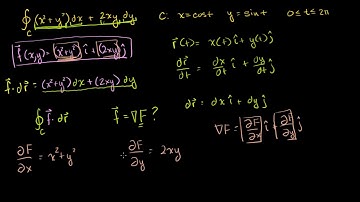 ∮_C (x²+y²)dx + 2xy dy
C: x=cost y=sint 0≤t≤2π
f⃗(x,y)=(x²+y²)î+(2xy)ĵ
r⃗(t)= x(t)î+y(t)ĵ
dr⃗/dt = dx/dt î + dy/dt ĵ
f⃗·dr⃗=(x²+y²)dx+(2xy)dy
dr⃗ = dx î + dy ĵ
∮_C f⃗·dr⃗ f⃗=∇F ?
∇F = ∂F/∂x î + ∂F/∂y ĵ
∂F/∂x = x²+y² ∂F/∂y = 2xy